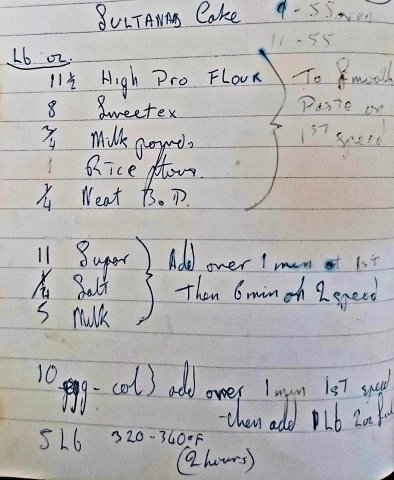 SULTANAS Cake 9-55
11-55
Lb oz.
11 ½ High Pro Flour To Smooth
8 Sweetex Paste on
¾ Milk powder 1ST speed
1 Rice flour.
¼ Neat B.P.
11 Sugar Add over 1 min at 1st
¼ Salt Then 6 min on 2 speed
5 Milk
10 egg - col } add over 1 min 1ST speed
-then add 1 Lb 2oz
5 Lb 320-340°F
(2 hours)